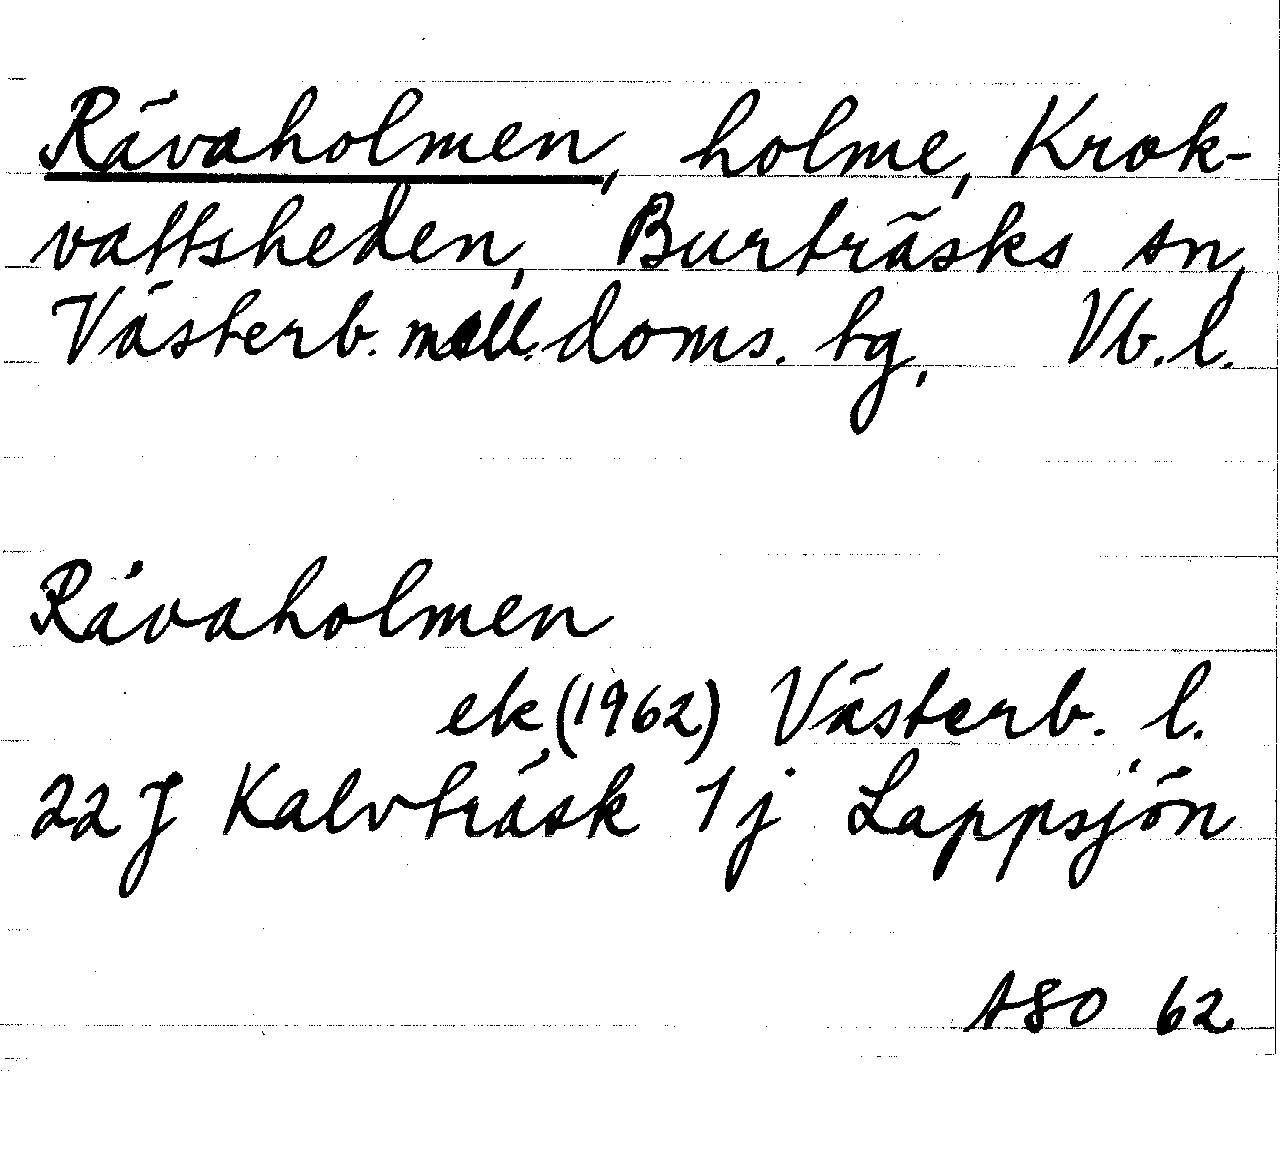 Rävaholmen, holme, Krok-
vattsheden, Burträsks sn,
Västerb. mell. doms. tg, Vb. l.
Rävaholmen
ek (1962) Västerb. l.
22 J Kalvträsk 1 j Lappsjön
ASO 62